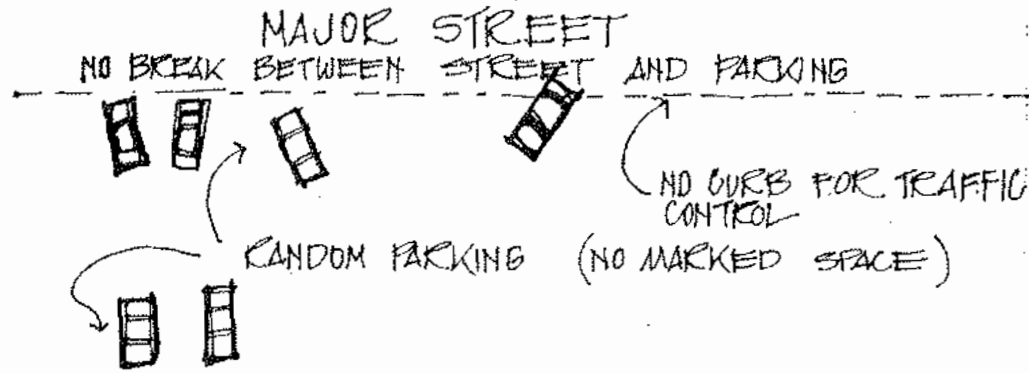 MAJOR STREET
NO BREAK BETWEEN STREET AND PARKING
NO CURB FOR TRAFFIC
CONTROL
RANDOM PARKING (NO MARKED SPACE)